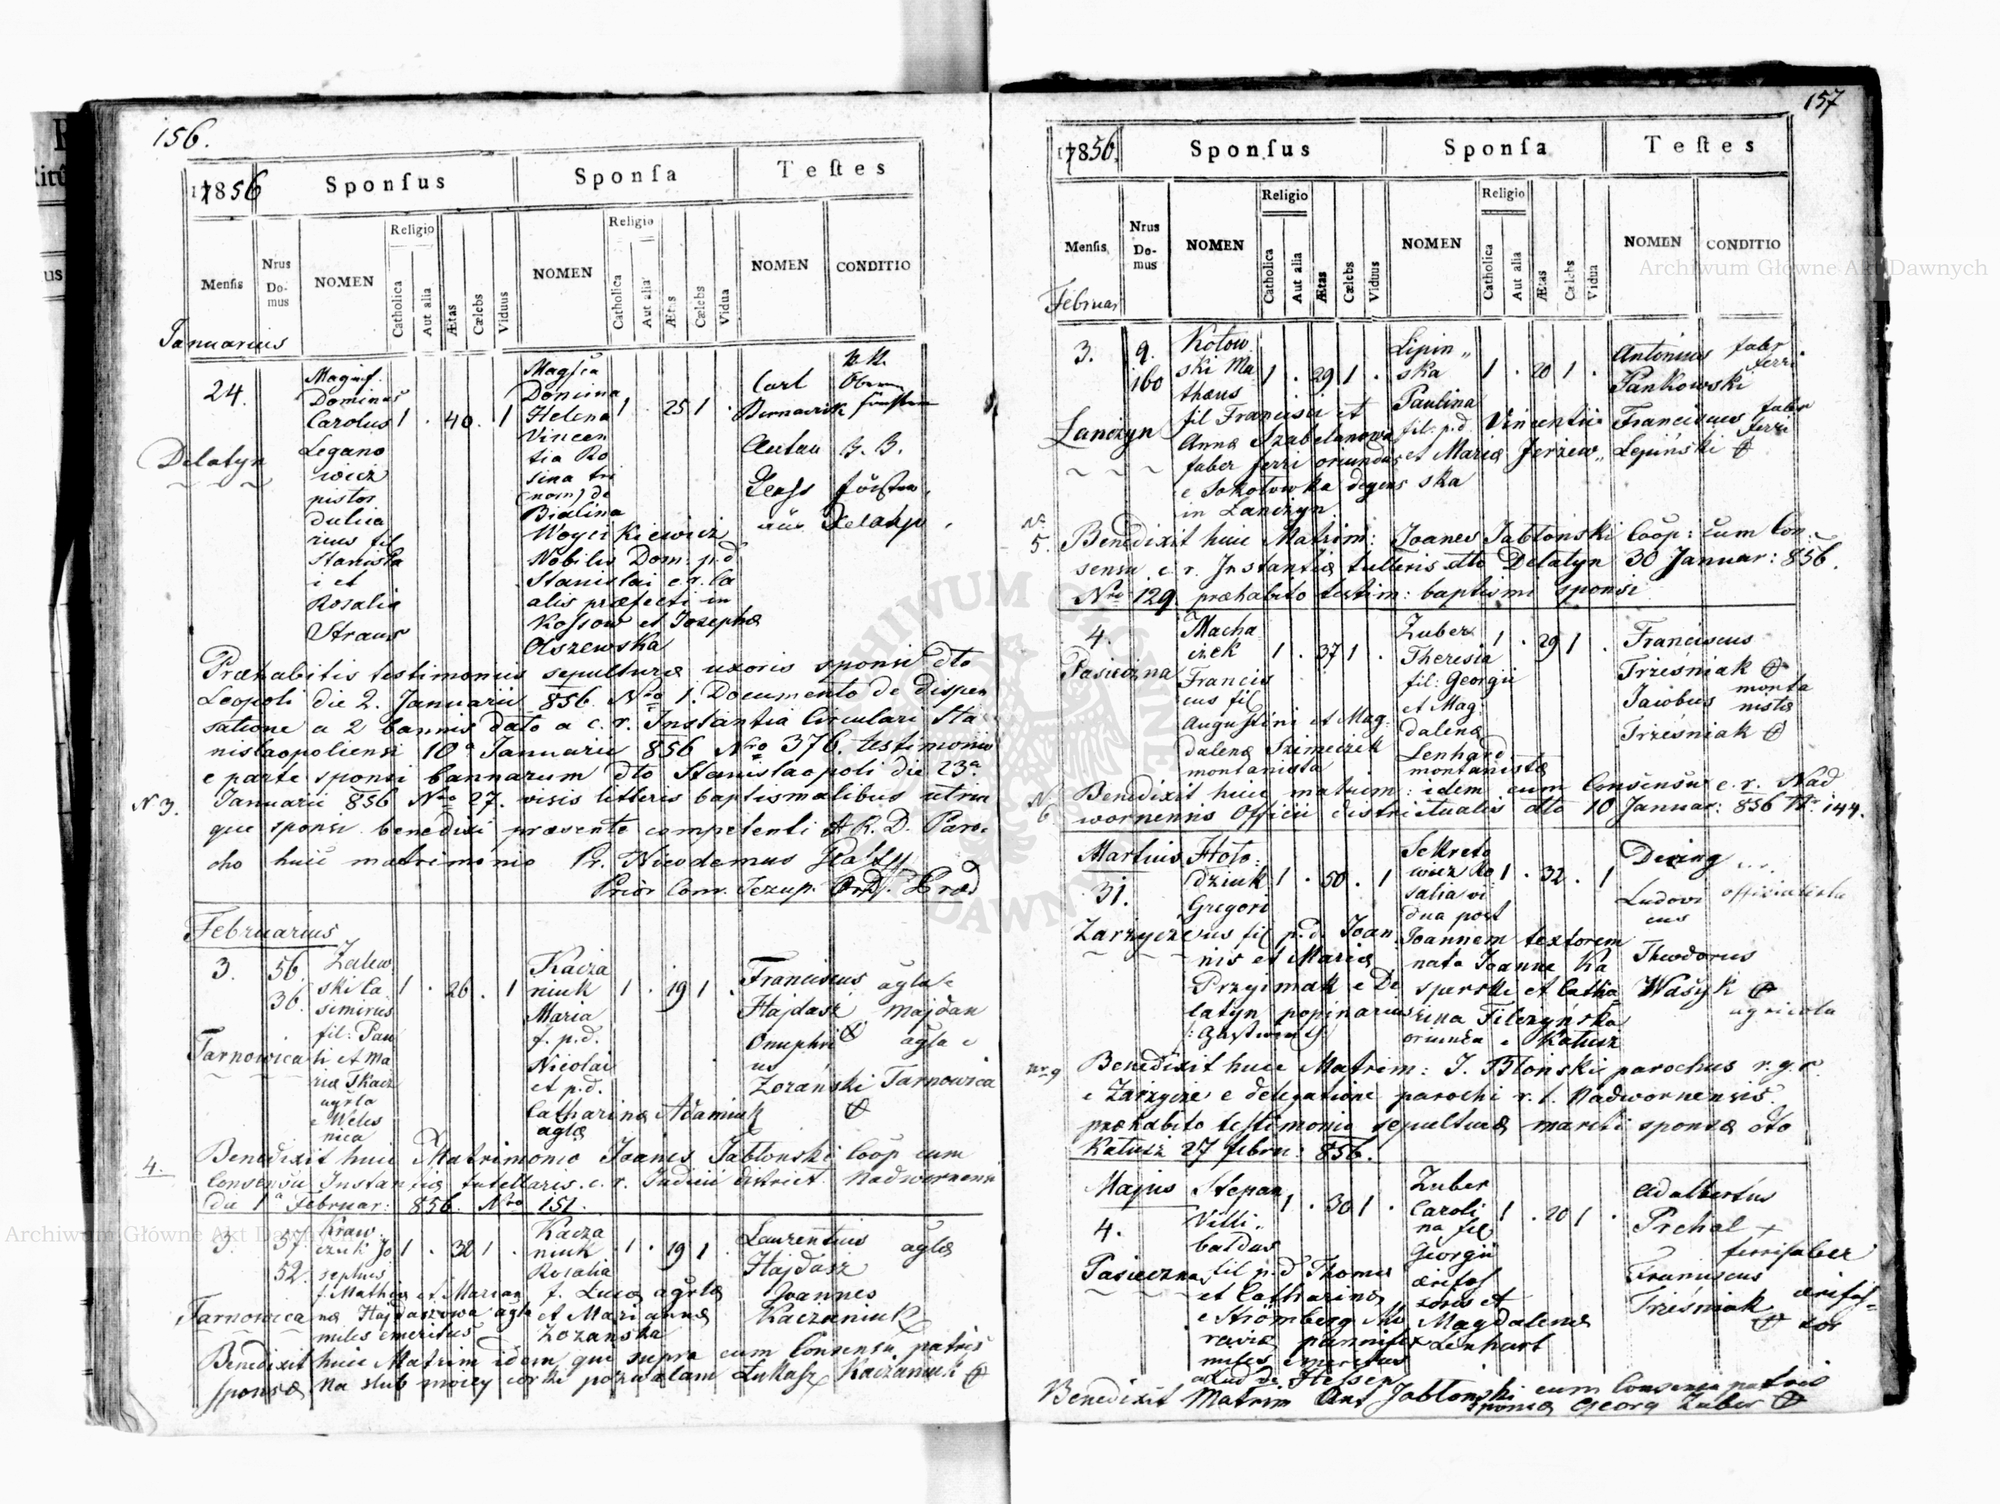 156.
1856
Sponsus
Sponsa
Testes
Mensis
Nrus Domus
NOMEN
Religio
Catholica
Aut alia
Ætas
Cælebs
Viduus
NOMEN
Religio
Catholica
Aut alia
Ætas
Cælebs
Vidua
NOMEN
CONDITIO
Januarius
24.
Delatyn
Magnif.
Dominus
Carolus
Legano
wicz
pistor
dulcia
rius fil
Stanisla
i et
Rosalia
Straus
1 . 40 . 1
Domina
Helena
Vincen
tia Ro
sina tri
nom) de
Bialina
Woycikiewicz
Nobilis Dom. p.d.
Stanislai c.r. ca
alis præfecti in
Kossow et Josepha
Aszewska
1 . 25 1 .
Carl
aus Delatyn.
Præhabitis testimonius sepulturæ uxoris sponsi dto
Leopoli die 2. Januarii 856 Nro 1. Documento de dispen
satione a 2 bannis dato a c.r. Instantia Circulari Sta
nislaopoliensi 10a Januarii 856 Nro 376. testimonio
e parte sponsi bannarum dto Stanislaopoli die 23a
N 3.
Januarii 856 Nro 27. visis litteris baptismalibus utriu
que sponsi benedixi præsente competenti A.R.D. Paro
cho huic matrimonio Pr. Nicodemus
Prior Conv. Jezup. Ord. Præd
Februarius
3.
56
36.
Tarnowica
Zalew
ski Ca
simirus
fil: Pau
li et Ma
ria Tkacz
agrla
e Weles
nica
1 . 26 . 1
Kacza
niuk
Maria
f. p.d.
Nicolai
et p.d.
Catharinæ Adamiuk
aglæ
1 . 19 1 .
Franciscus agla e
Hajdasz Majdan
Onuphri agla e
us
Zozański Tarnowica
Benedixit huic Matrimonio Joanes Jabłonski Coop cum
4.
Consensu Instantiæ tutellaris c.r. Judicii district. Nadwornensi
die 1a Februar: 856. Nro 151.
3.
57
52.
Tarnowica
Kraw
czuk Jo
sephus
f. Mathia et Marian
na Hajdaszowa agla
miles emeritus
1 . 32 1 .
Kacza
niuk
Rosalia
f. Luca agrlæ
et Mariannæ
Zozanska
1 . 19 1
Laurentius aglæ
Hajdasz
Joannes
Kaczaniuk
Benedixit huic Matrim idem qui supra cum Consensu patris
sponsæ Na slub moiey corki pozwalam Łukasz Kaczaniuk
157
1856
Sponsus
Sponsa
Testes
Mensis
Nrus Domus
NOMEN
Religio
Catholica
Aut alia
Ætas
Cælebs
Viduus
NOMEN
Religio
Catholica
Aut alia
Ætas
Cælebs
Vidua
NOMEN
CONDITIO
Februar
3.
9.
160
Lanczyn
Kotow
ski Ma
thæus
fil Francisci et
Anna Szabelanowa
faber ferri oriundus
e Sokołowka degens
in Lanczyn
1 . 29 1 .
Lipin
ska
Paulina
fil: p.d. Vincentii
et Maria Jerzew
ska
1 . 20 1 .
Antonius faber
Pankowski ferri
Franciscus faber
Lepiński ferri
No
5.
Benedixit huic Matrim: Joanes Jabłonski Coop: cum Con
sensu c.r. Instantiæ tutteris dto Delatyn 30 Januar: 856.
Nro 129. præhabito testim: baptismi sponsi
4.
Pasieczna
Macha
czek
Francis
cus fil
Augustini et Mag
dalenæ Szimeczek
montanista
1 . 37 1 .
Zuber
Theresia
fil: Georgii
et Mag
dalena
Lenhard
montanistæ
1 . 29 1 .
Franciscus
Trześniak
Jacobus monta
nista
Trześniak
N
6
Benedixit huic matrim: idem cum Consensu c.r. Nad
wornennis Officii districtualis dto 10 Januar: 856 N. 144.
Martius
31.
Zarzycze
Hoło
dziuk
Gregori
us fil p.d. Joan
nis et Maria
Przyimak e De
latyn popinarius
1 . 50 . 1
Sekreto
wicz Ro
salia vi
dua post
Joannem textorem
nata Joanne Ka
sparski et Catha
rina Filczyńska
oriunda e Kałusz
1 . 32 . 1
Dering
Ludovi officialista
cus
Theodorus
Wasyk
agricola
nr. 9
Benedixit huic Matrim: J. Błonski parochus r.g.c.
e Zarzycze e delegatione parochi r.l. Nadwornensis.
præhabito testimonio sepulturæ mariti sponsæ dto
Kałusz 27 febru: 856.
Majus
4.
Pasieczna
Stepan
Villi
baldus
fil p.d Thoma
et Catharina
e Strömberg Mo
ravia pannifex
miles emeritus
apud de Hessen
1 . 30 1 .
Zuber
Caroli
na fil
Georgii
ærifos
soris et
Magdalena
Lenhart
1 . 20 1 .
Adalbertus
Prchal +
ferrifaber
Franciscus
Trześniak ærifos
sor
Benedixit Matrim Ant Jabłonski cum Consensu patris
sponsæ Georg Zuber
Archiwum Główne Akt Dawnych
Archiwum Główne Akt Dawnych
ARCHIWUM GŁÓWNE
AKT DAWNYCH